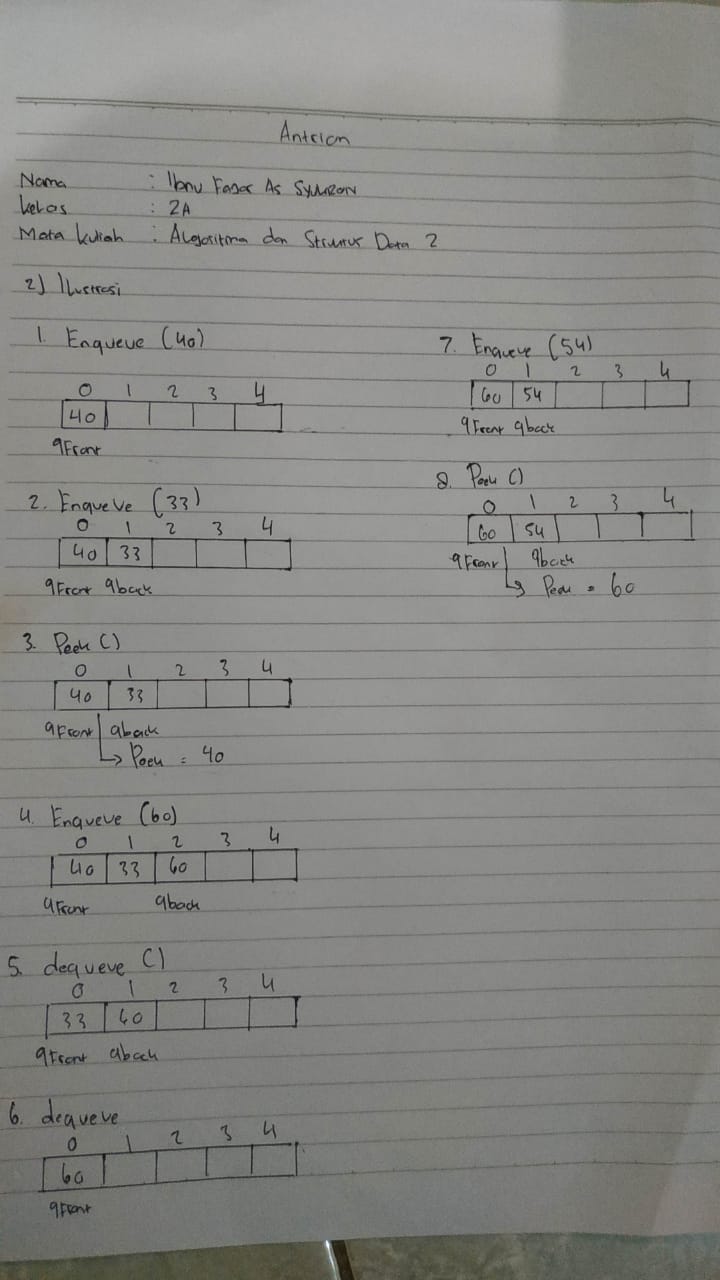 Antrian
Nama : Ibnu Fajar As
Kelas : 2A
Mata Kuliah : Algoritma dan Struktur Data 2
2) Ilustrasi
1. Enqueue (40)
0 1 2 3 4
40
qFront
2. Enqueue (33)
0 1 2 3 4
40 33
qFront qback
3. Peek ()
0 1 2 3 4
40 33
qFront qback
↳ Peek = 40
4. Enqueue (60)
0 1 2 3 4
40 33 60
qFront qback
5. dequeue ()
0 1 2 3 4
33 60
qFront qback
6. dequeue
0 1 2 3 4
60
qFront
7. Enqueue (54)
0 1 2 3 4
60 54
qFront qback
8. Peek ()
0 1 2 3 4
60 54
qFront qback
↳ Peek = 60